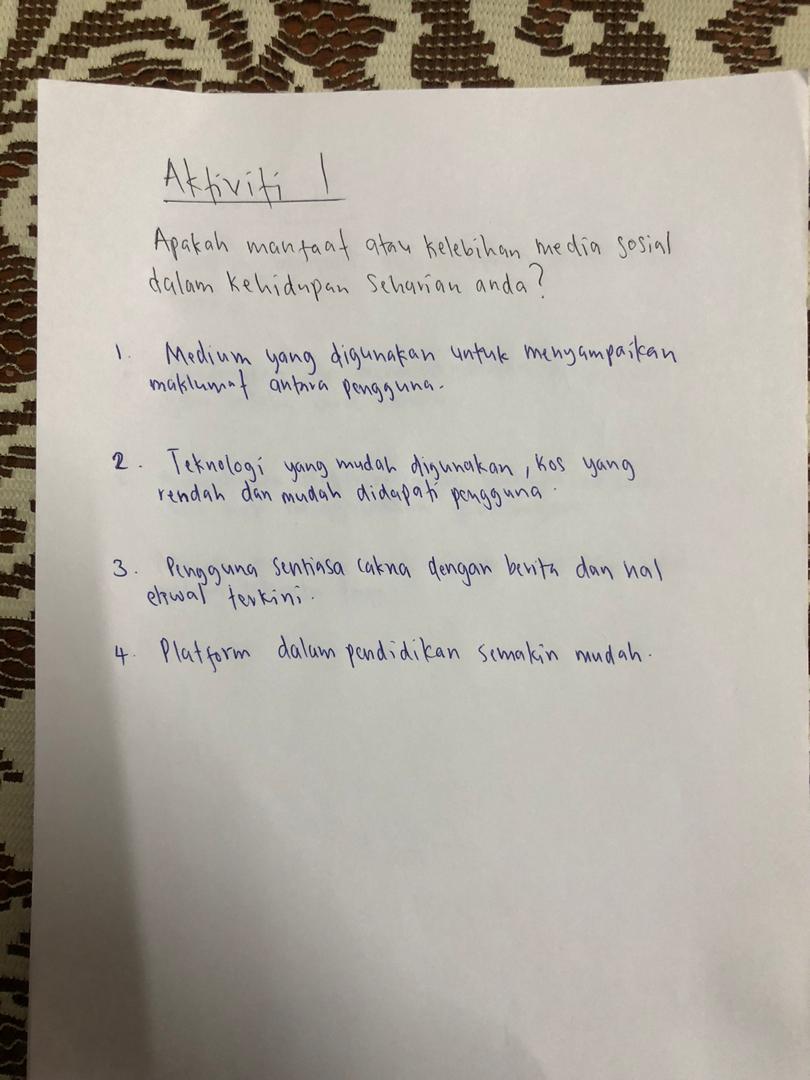 Aktiviti 1
Apakah manfaat atau kelebihan media sosial
dalam kehidupan seharian anda?
1. Medium yang digunakan untuk menyampaikan
maklumat antara pengguna.
2. Teknologi yang mudah digunakan, kos yang
rendah dan mudah didapati pengguna.
3. Pengguna sentiasa cakna dengan berita dan hal
ehwal terkini.
4. Platform dalam pendidikan semakin mudah.